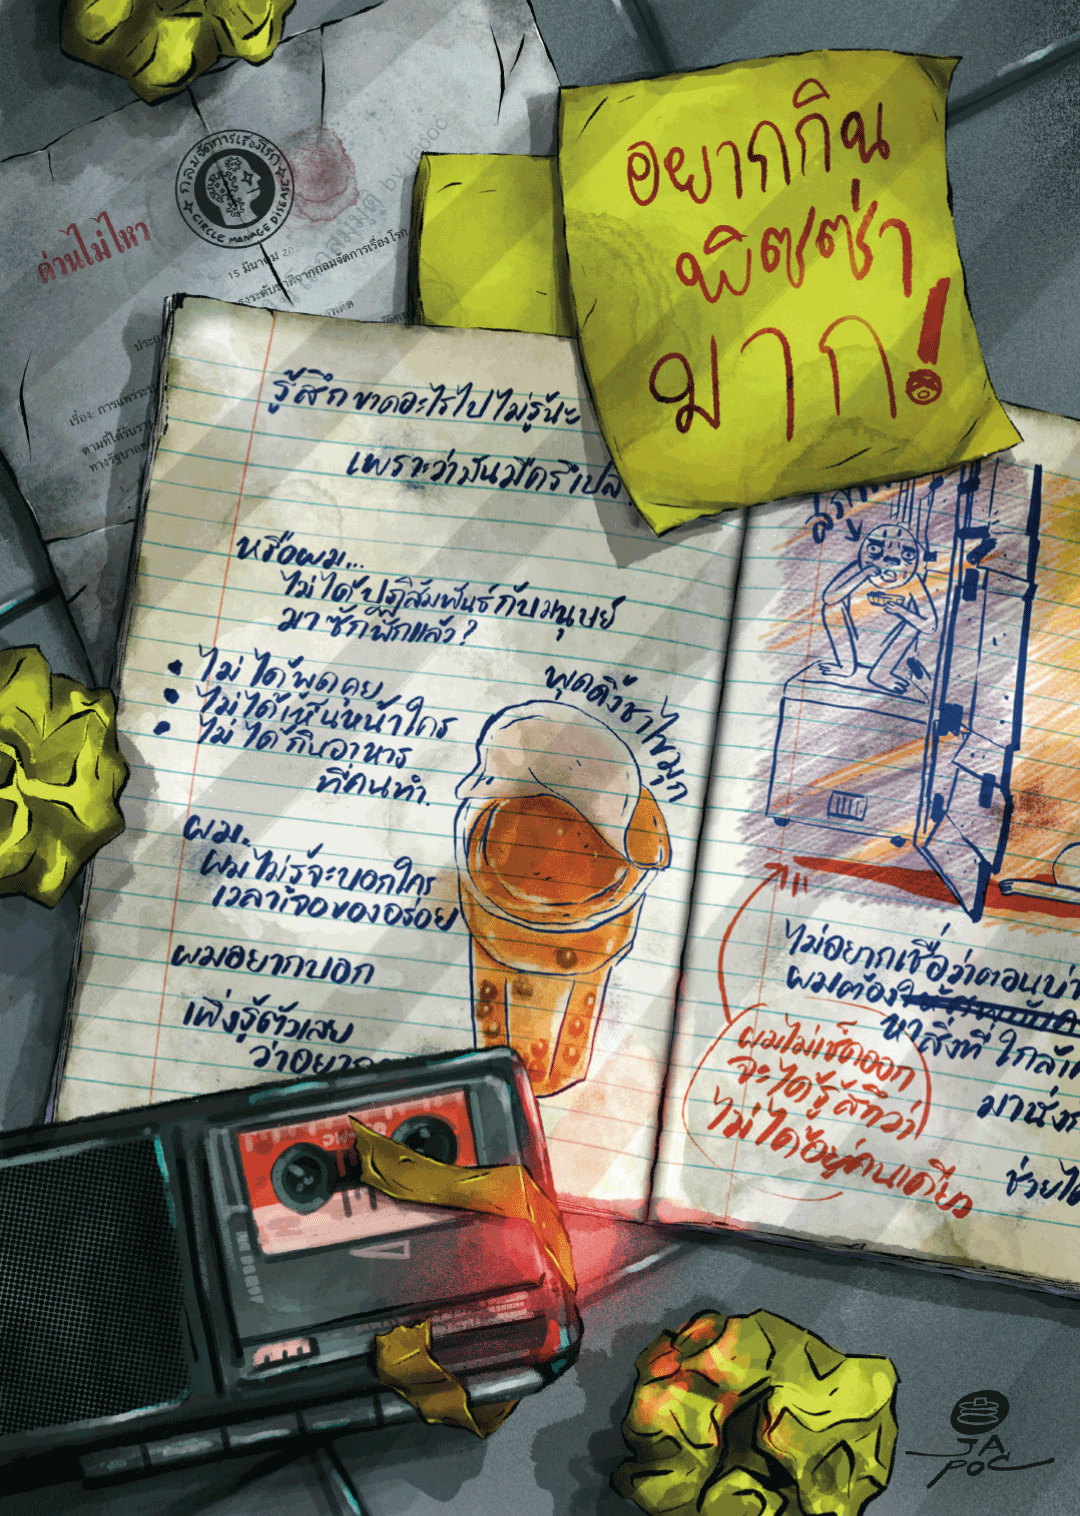 กลมจัดการเรื่องโรค
CIRCLE MANAGE DISEASE
ด่วนไม่ไหว
15 มีนาคม 20
by Japoc
อยากกิน
พิซซ่า
มาก!
รู้สึกขาดอะไรไปไม่รู้นะ
เพราะว่ามันมืดรึเปล
หรือผม...
ไม่ได้ปฏิสัมพันธ์กับมนุษย์
มาซักพักแล้ว?
• ไม่ได้พูดคุย
• ไม่ได้เห็นหน้าใคร
• ไม่ได้กินอาหาร
ที่คนทำ.
พุดดิ้งชาไข่มุก
ผม..
ผมไม่รู้จะบอกใคร
เวลาเจอของอร่อย
ผมอยากบอก
เพิ่งรู้ตัวเลย
ว่าอยาก
ไม่อยากเชื่อว่าตอนบ่า
ผมต้อง
หาสิ่งที่ใกล้เ
มานั่ง
ช่วยได
ผมไม่เช็คออก
จะได้รู้สึกว่า
ไม่ได้อยู่คนเดียว
JAPOC